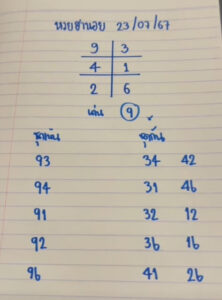 หวยฮานอย 23/07/67
9 3
4 1
2 6
เด่น 9
ชุดเน้น ชุดอื่น
93 34 42
94 31 46
91 32 12
92 36 16
96 41 26